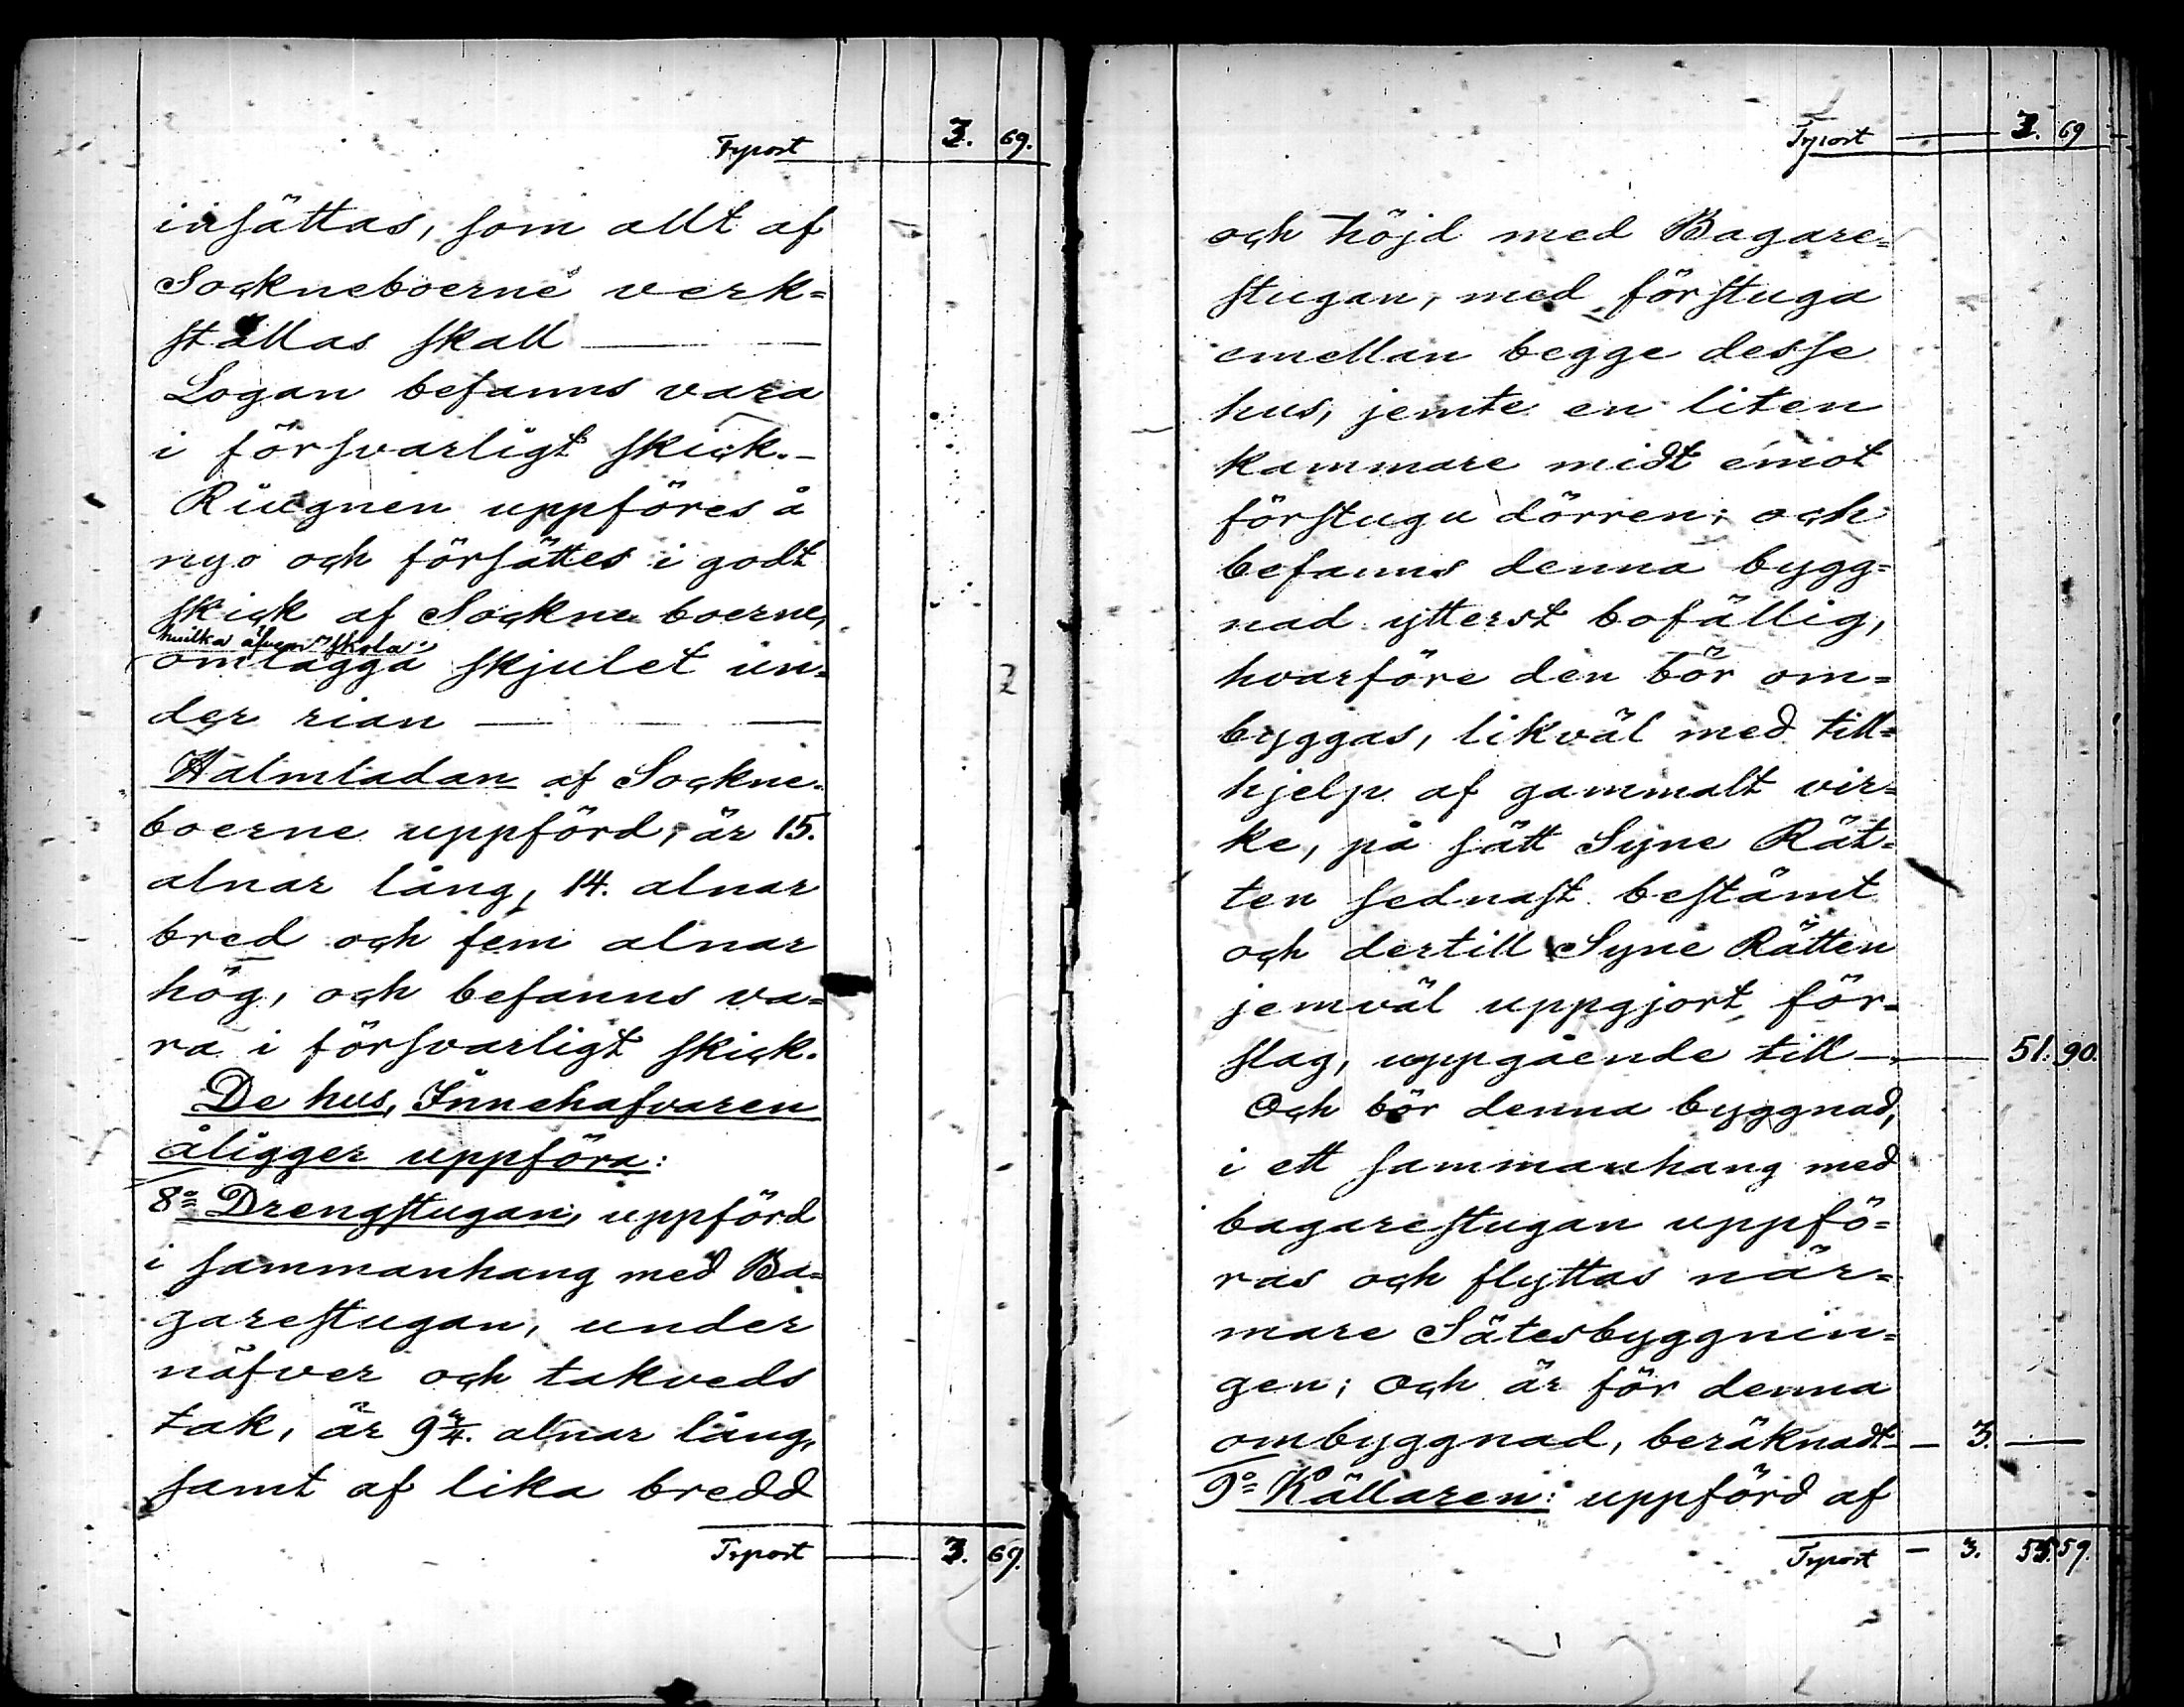 Trsport 3. 69.
insättas, som allt af
Sockneboerne verk=
ställas skall
Logan befanns vara
i försvarligt skick.-
Riugnen uppföres å
nyo och försättes i godt
skick af Sockne boerne,
hvilka äfven skola
omlägga skjulet un=
der rian
Halmladan af Sockne=
boerne uppförd, är 15.
alnar lång, 14. alnar
bred och fem alnar
hög, och befanns va=
ra i försvarligt skick.
De hus, Innehafvaren
åligger uppföra:
8o Drengstugan, uppförd
i sammanhang med Ba=
garestugan, under
näfver och takveds
tak, är 9 3/4. alnar lång,
samt af lika bredd
Trsport 3. 69.
Trsport 3. 69
och höjd med Bagare=
stugan, med förstuga
emellan begge desse
hus, jemte en liten
kammare midt emot
förstugu dörren; och
befanns denna bygg=
nad ytterst bofällig,
hvarföre den bör om=
byggas, likväl med till=
hjelp af gammalt vir=
ke, på sätt Syne Rät=
ten sednast bestämt
och dertill Syne Rätten
jemväl uppgjort för=
slag, uppgående till 51. 90.
Och bör denna byggnad,
i ett sammanhang med
bagarestugan uppfö=
ras och flyttas när=
mare Sätesbyggnin=
gen; och är för denna
ombyggnad, beräknadt - 3. -
9o Källaren: uppförd af
Trsport - 3. 55. 59.